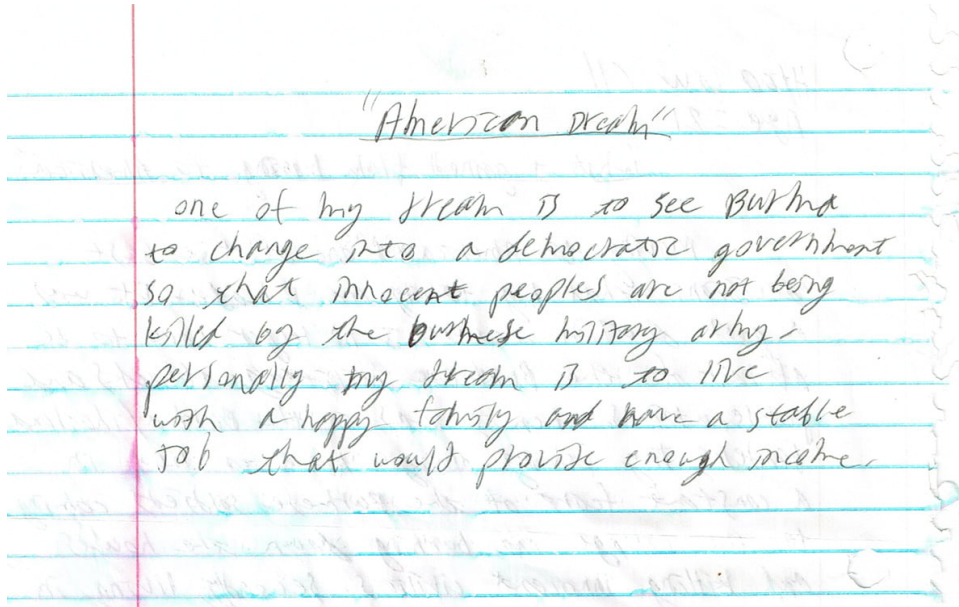 "American Dream"
one of my dream is to see Burma
to change into a democratic government
so that innocent peoples are not being
killed by the burmese military army.
personally my dream is to live
with a happy family and have a stable
Job that would provide enough income.